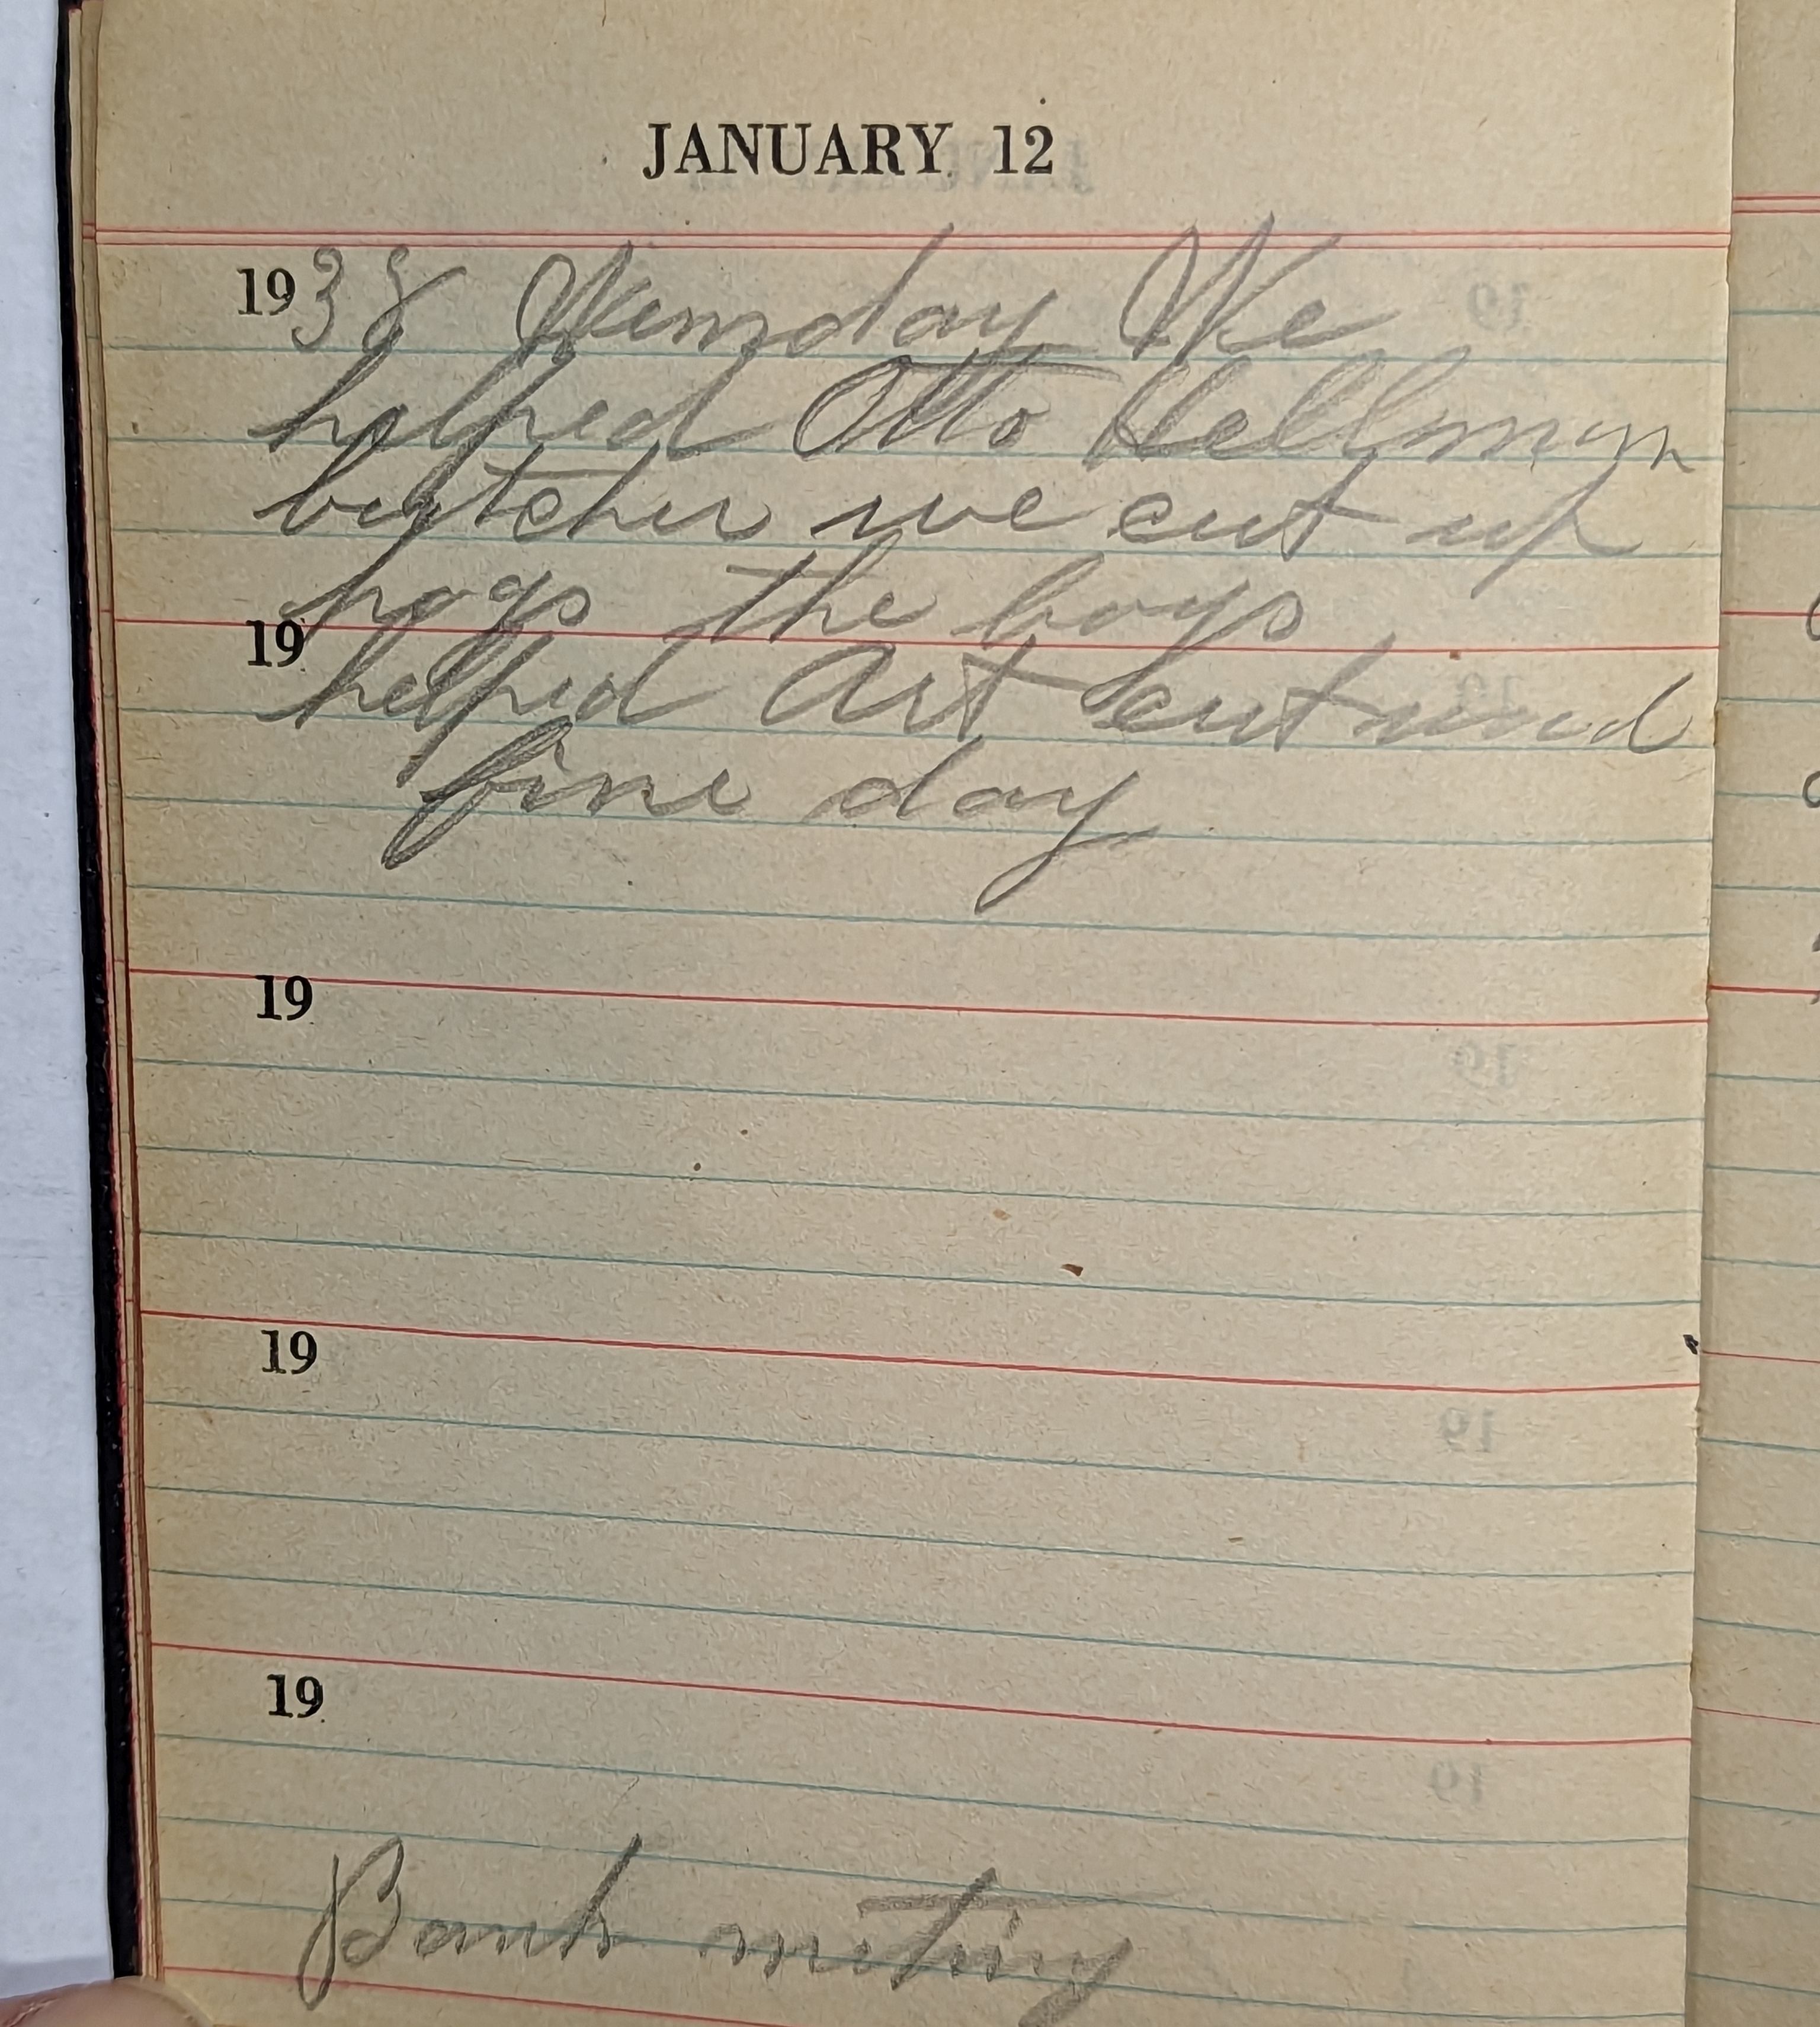 JANUARY 12
1938 Wensday We
helped Otto Hellman
butcher we cut up
hogs the boys
19
helped Art cut wood
fine day
19
19
19
Bank meting